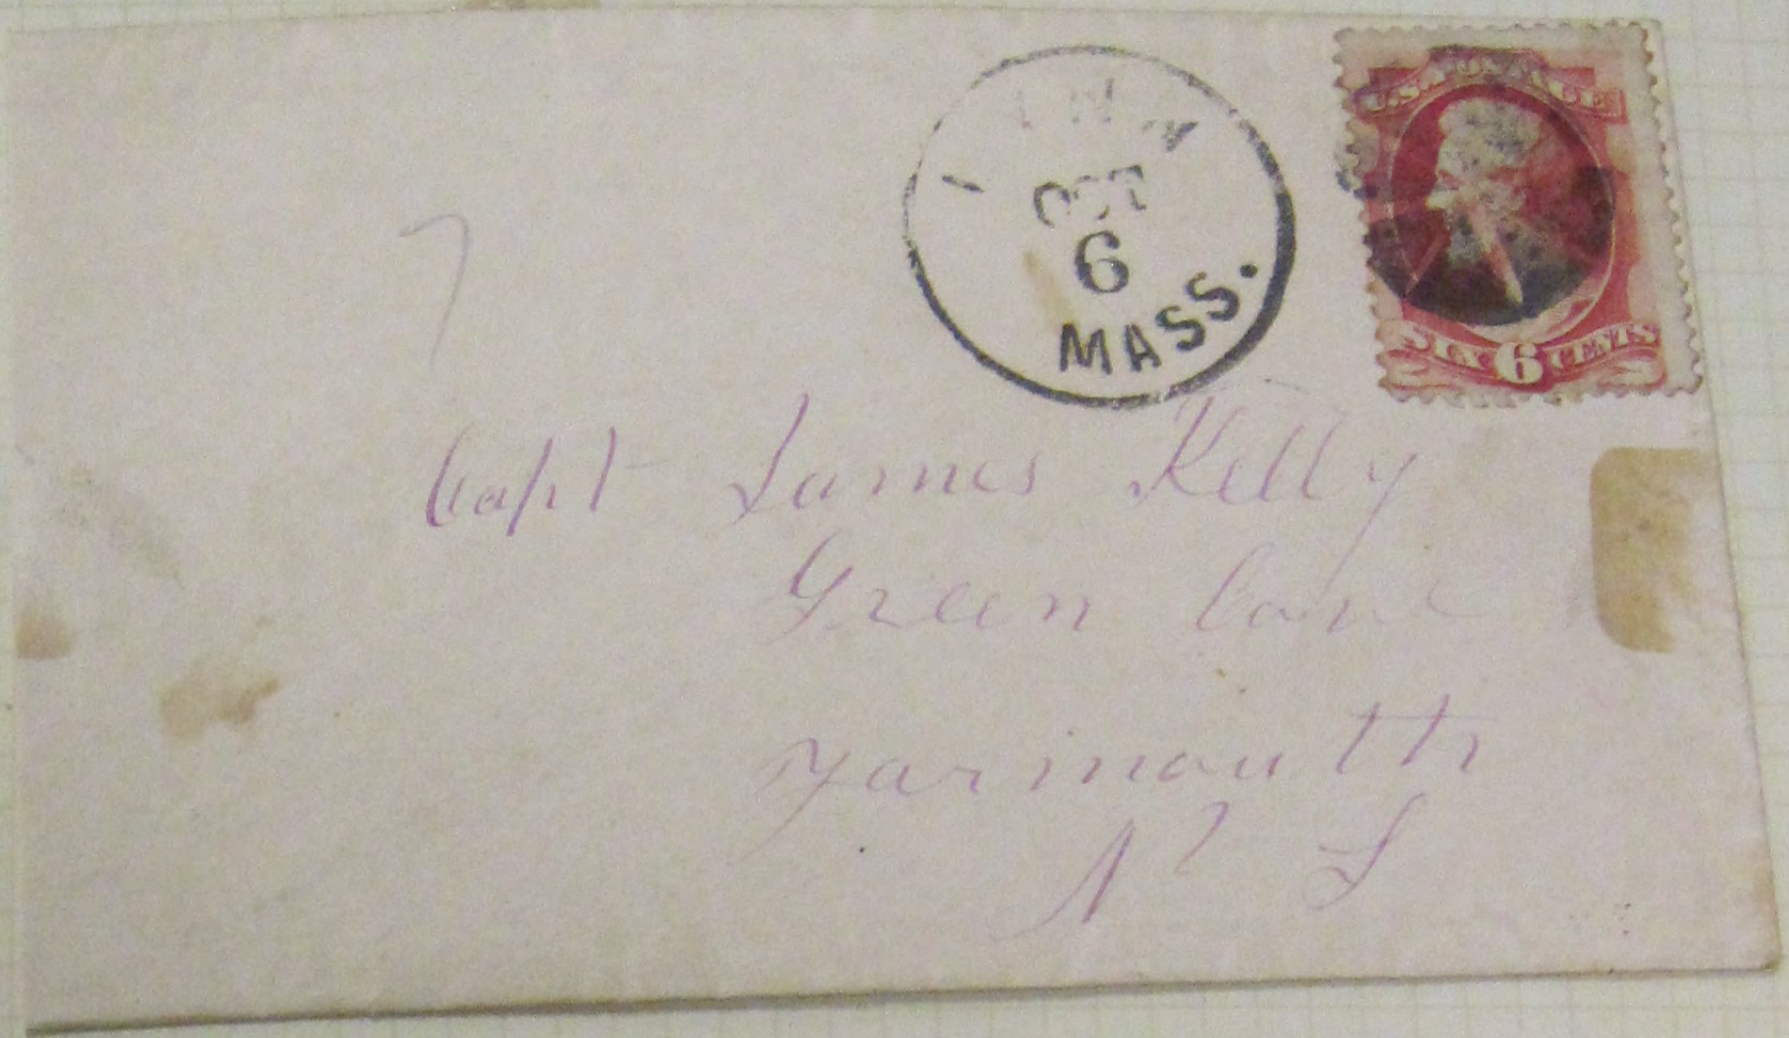 OCT
6
MASS.
U.S. POSTAGE
SIX 6 CENTS
7
Capt James Kelly
Green Cove
Yarmouth
N S